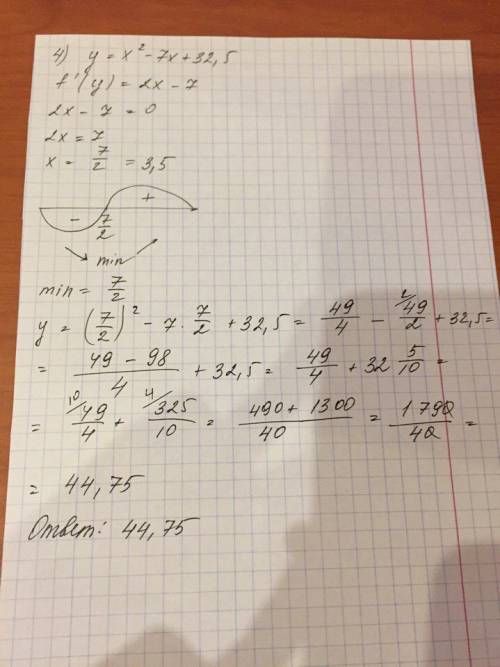 4) y = x² - 7x + 32,5
f'(y) = 2x - 7
2x - 7 = 0
2x = 7
x = 7/2 = 3,5
- 7/2 +
min
min = 7/2
y = (7/2)² - 7 · 7/2 + 32,5 = 49/4 - ²/49/2 + 32,5 =
= 49 - 98/4 + 32,5 = 49/4 + 32 5/10 =
= ¹⁰/49/4 + ⁴/325/10 = 490 + 1300/40 = 1790/40 =
= 44,75
Ответ: 44,75